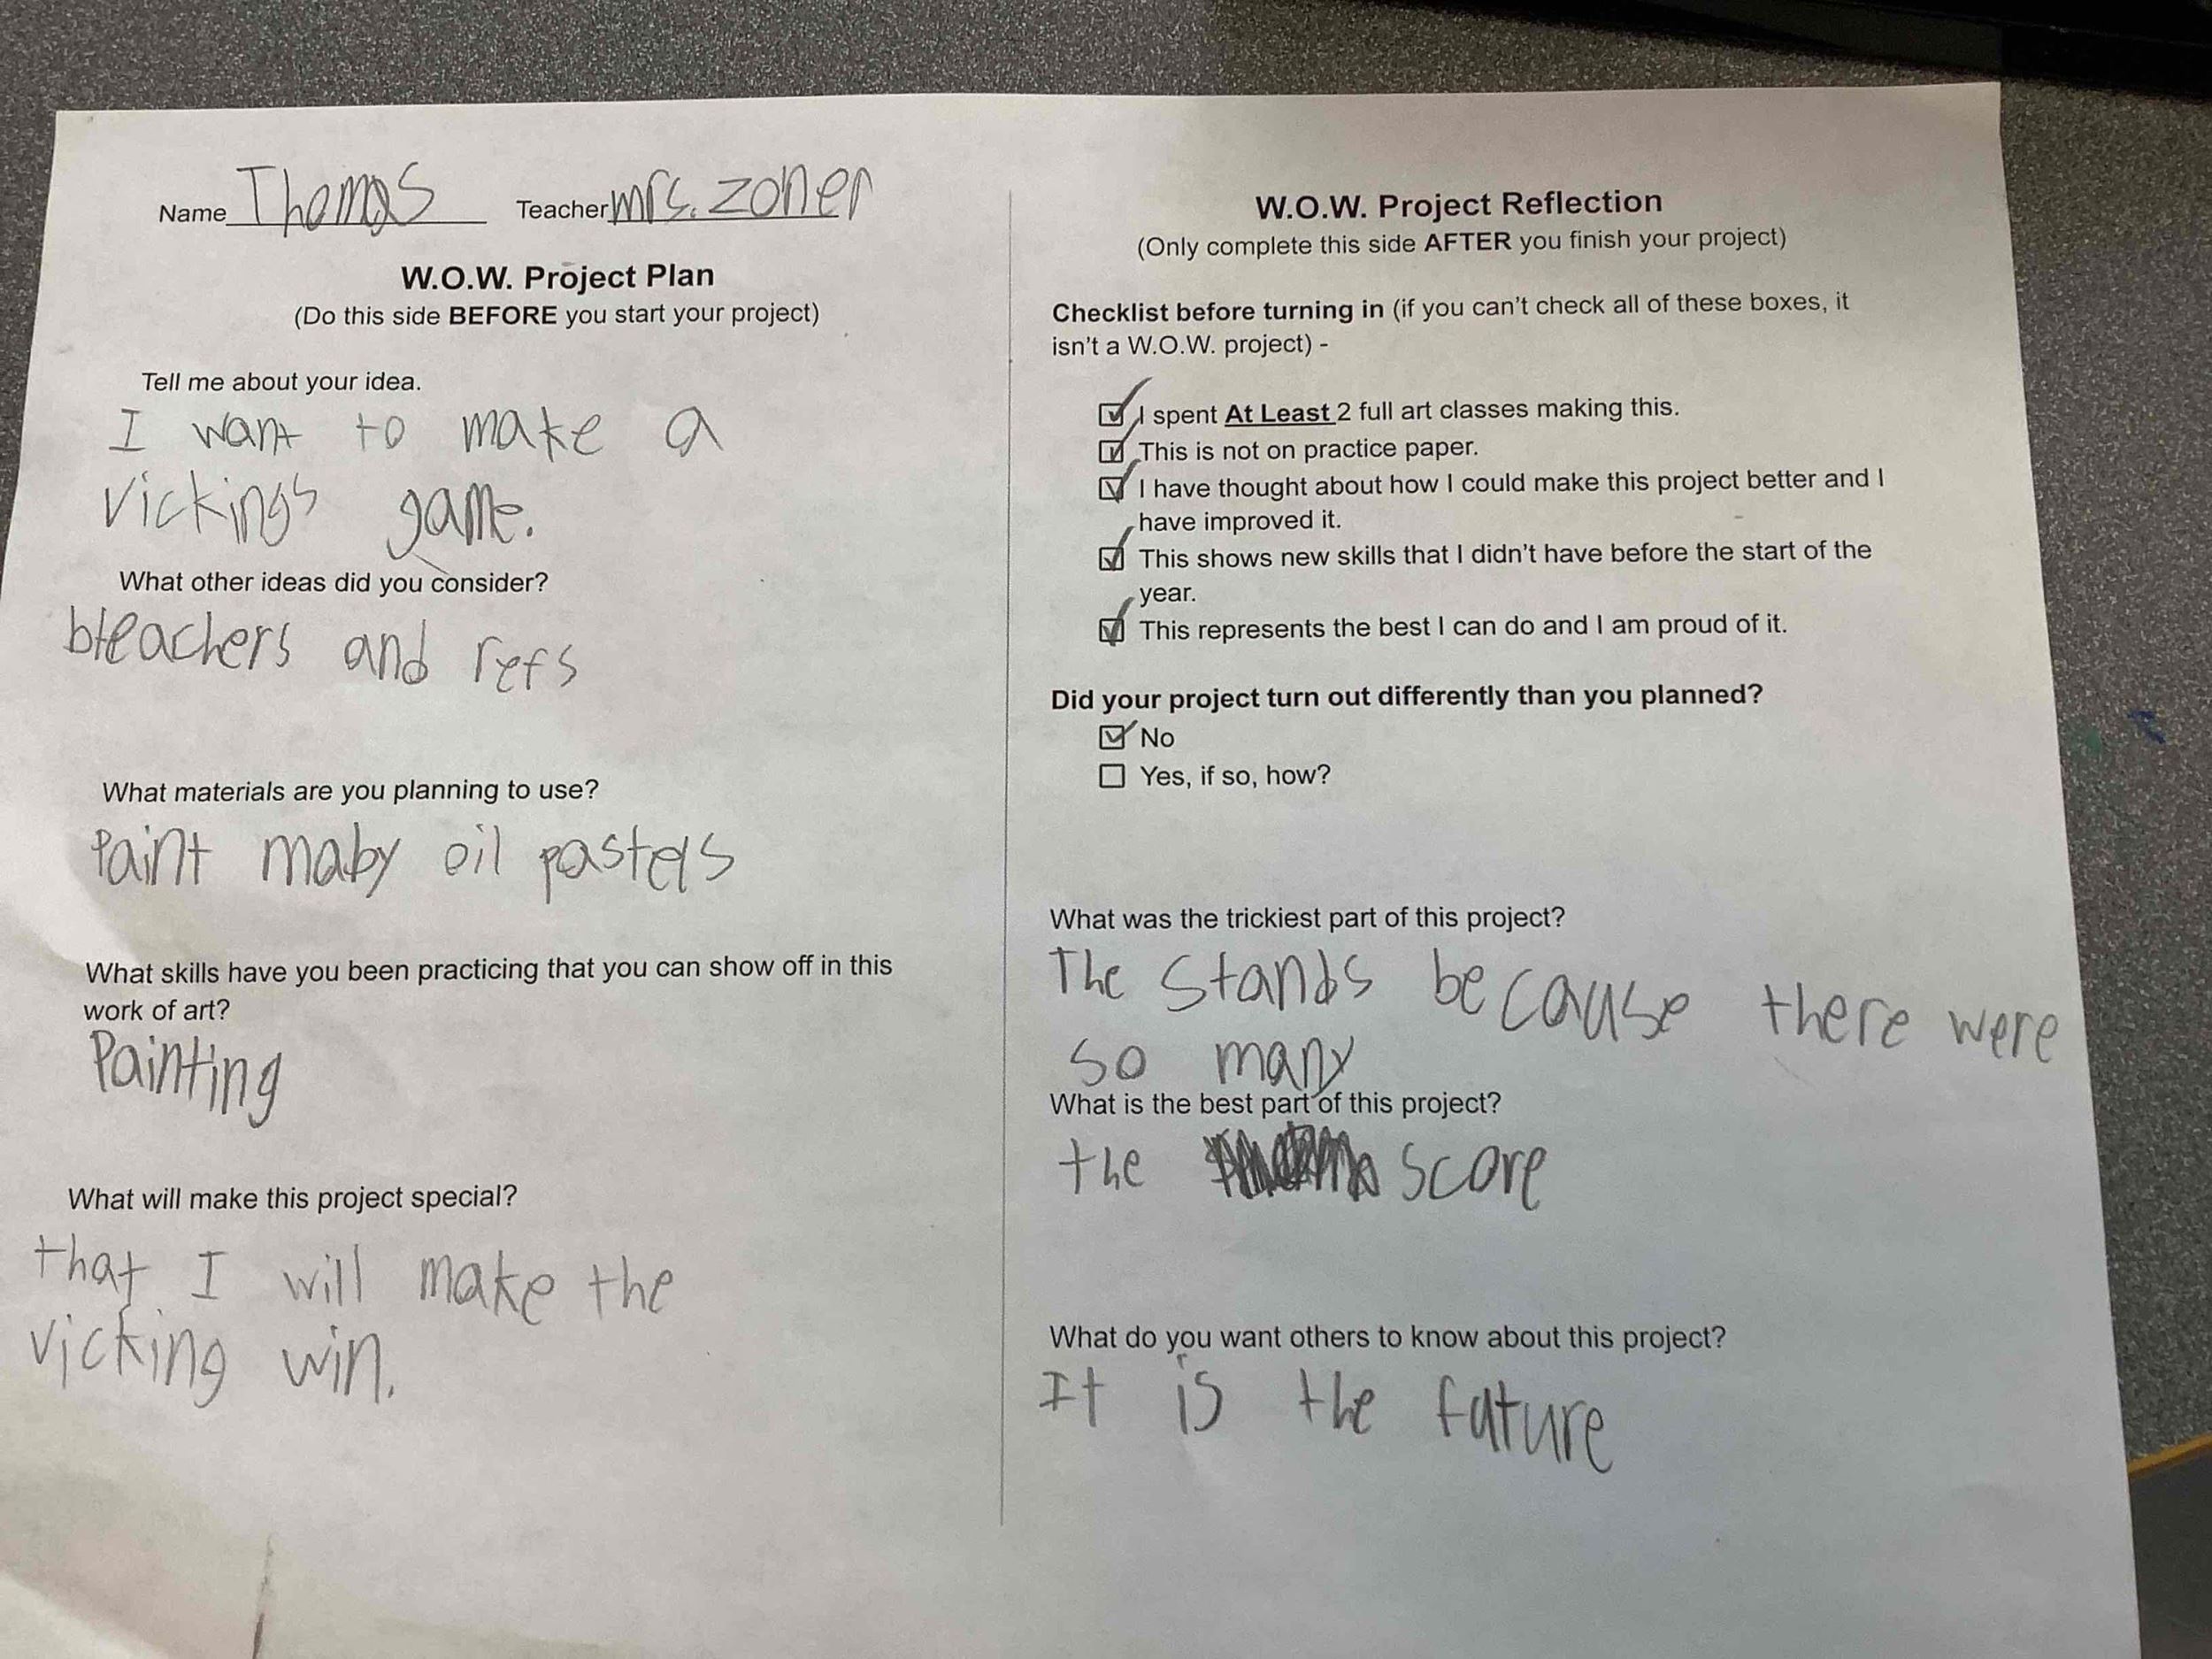 Name Thomas Teacher mrs. zoner
W.O.W. Project Plan
(Do this side BEFORE you start your project)
Tell me about your idea.
I want to make a
vickings game.
What other ideas did you consider?
bleachers and refs
What materials are you planning to use?
Paint maby oil pastels
What skills have you been practicing that you can show off in this
work of art?
Painting
What will make this project special?
that I will make the
vicking win.
W.O.W. Project Reflection
(Only complete this side AFTER you finish your project)
Checklist before turning in (if you can't check all of these boxes, it
isn't a W.O.W. project) -
I spent At Least 2 full art classes making this.
This is not on practice paper.
I have thought about how I could make this project better and I
have improved it.
This shows new skills that I didn't have before the start of the
year.
This represents the best I can do and I am proud of it.
Did your project turn out differently than you planned?
No
Yes, if so, how?
What was the trickiest part of this project?
The stands because there were
so many
What is the best part of this project?
the score
What do you want others to know about this project?
It is the future